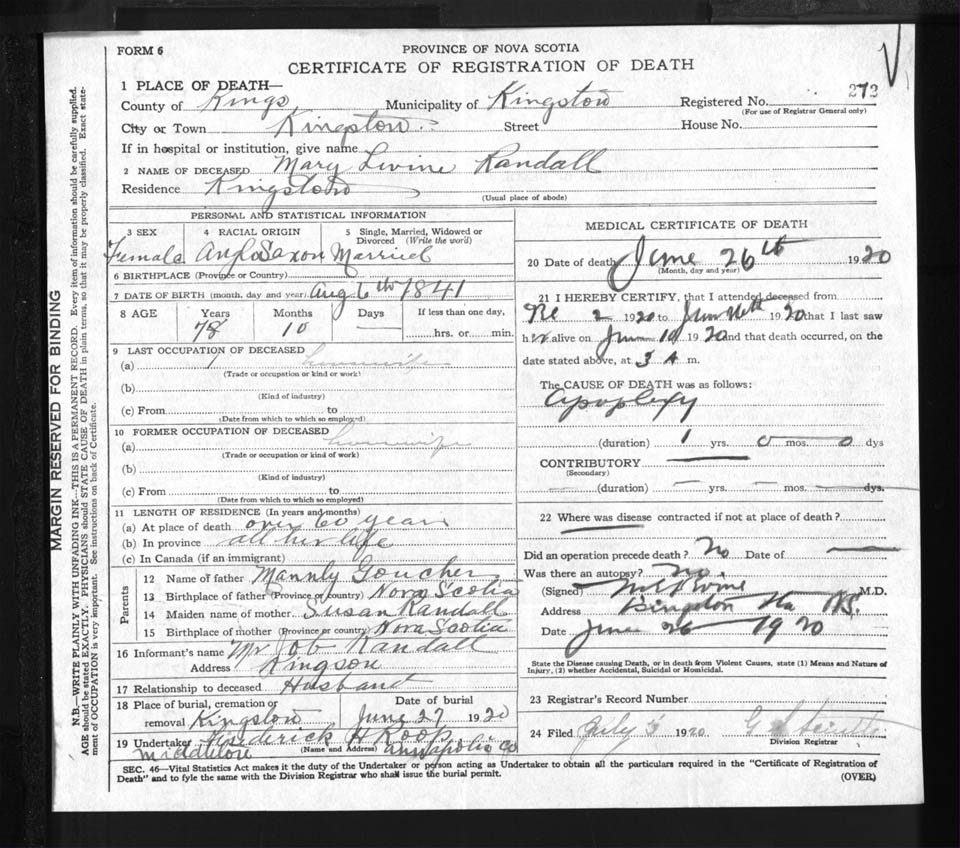 FORM 6
PROVINCE OF NOVA SCOTIA
CERTIFICATE OF REGISTRATION OF DEATH
1 PLACE OF DEATH—
County of Kings Municipality of Kingston Registered No. 272
(For use of Registrar General only)
City or Town Kingston Street House No.
If in hospital or institution, give name
2 NAME OF DECEASED Mary Randall
Residence Kingston
(Usual place of abode)
PERSONAL AND STATISTICAL INFORMATION
3 SEX 4 RACIAL ORIGIN 5 Single, Married, Widowed or Divorced (Write the word)
Female Anglo Saxon Married
6 BIRTHPLACE (Province or Country)
7 DATE OF BIRTH (month, day and year) Aug 6th 1841
8 AGE Years Months Days If less than one day,
78 10 hrs. or min.
9 LAST OCCUPATION OF DECEASED
(a) housewife
(Trade or occupation or kind or work)
(b)
(Kind of industry)
(c) From to
(Date from which to which so employed)
10 FORMER OCCUPATION OF DECEASED
(a) housewife
(Trade or occupation or kind of work)
(b)
(Kind of industry)
(c) From to
(Date from which to which so employed)
11 LENGTH OF RESIDENCE (In years and months)
(a) At place of death over 60 years
(b) In province all her life
(c) In Canada (if an immigrant)
Parents
12 Name of father Mannly Goucher
13 Birthplace of father (Province or country) Nova Scotia
14 Maiden name of mother Susan Randall
15 Birthplace of mother (Province or country) Nova Scotia
16 Informant's name Mr Job Randall
Address Kingson
17 Relationship to deceased Husband
18 Place of burial, cremation or removal Kingston
Date of burial
June 27 1920
19 Undertaker Roop
(Name and Address)
Middleton Annapolis Co
MEDICAL CERTIFICATE OF DEATH
20 Date of death June 26th 1920
(Month, day and year)
21 I HEREBY CERTIFY, that I attended deceased from
2 1920 to 1920 that I last saw
her alive on 1920 and that death occurred, on the
date stated above, at 3 A m.
The CAUSE OF DEATH was as follows:
Apoplexy
(duration) 1 yrs. 0 mos. 0 dys
CONTRIBUTORY
(Secondary)
(duration) yrs. mos. dys.
22 Where was disease contracted if not at place of death?
Did an operation precede death? No Date of
Was there an autopsy? No
(Signed) M.D.
Address Kingston
Date June 26 1920
State the Disease causing Death, or in death from Violent Causes, state (1) Means and Nature of
Injury, (2) whether Accidental, Suicidal or Homicidal.
23 Registrar's Record Number
24 Filed July 1920
Division Registrar
SEC. 46—Vital Statistics Act makes it the duty of the Undertaker or person acting as Undertaker to obtain all the particulars required in the "Certificate of Registration of
Death" and to fyle the same with the Division Registrar who shall issue the burial permit.
(OVER)
MARGIN RESERVED FOR BINDING
N.B.—WRITE PLAINLY WITH UNFADING INK—THIS IS A PERMANENT RECORD. Every item of information should be carefully supplied.
AGE should be stated EXACTLY. PHYSICIANS should STATE CAUSE OF DEATH in plain terms, so that it may be properly classified. Exact state-
ment of OCCUPATION is very important. See instructions on back of Certificate.